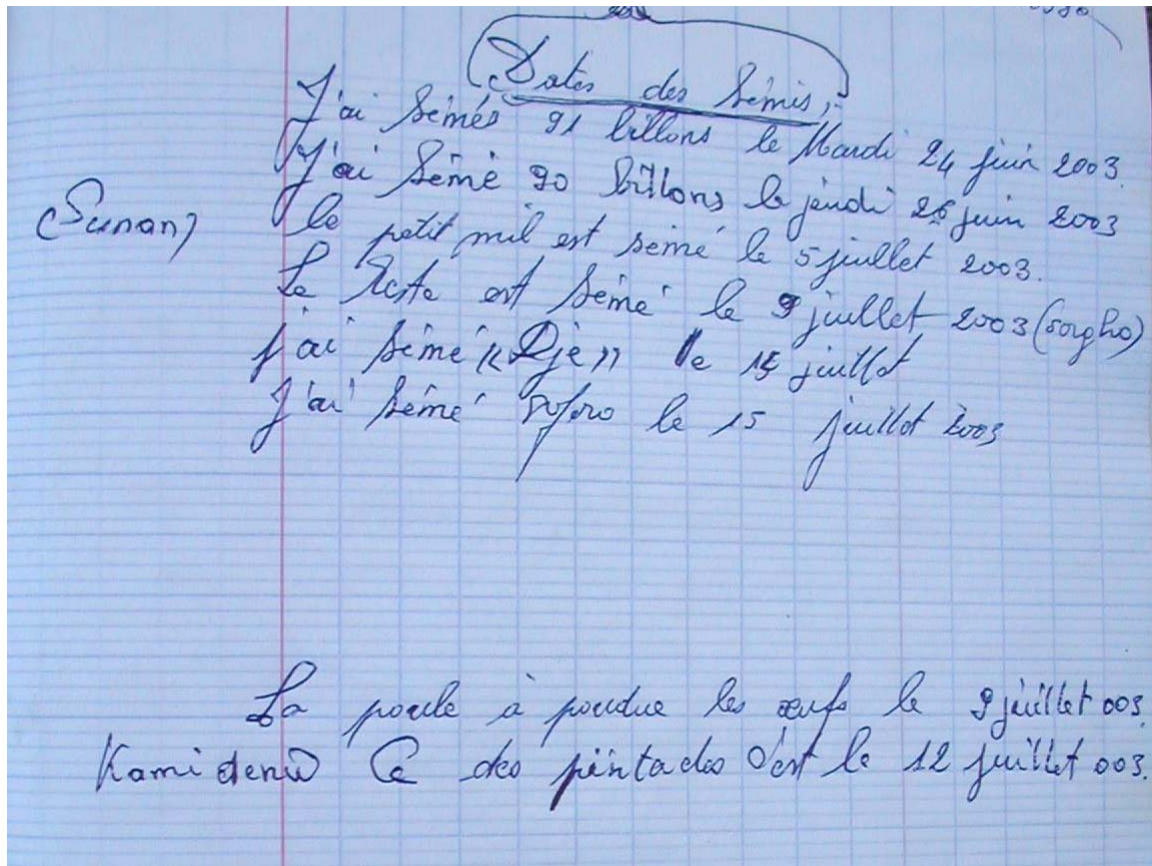 (Dates des Semis;
J'ai semés 91 billons le Mardi 24 juin 2003.
J'ai semé 90 billons le jeudi 26 juin 2003
(Sunan) le petit mil est semé le 5 juillet 2003.
Le Reste est semé le 9 juillet 2003 (sorgho)
j'ai semé "Djè" le 15 juillet
J'ai semé le 15 juillet 2003
La poule à poudue les œufs le 9 juillet 003.
Kami Ce des pintades c'est le 12 juillet 003.